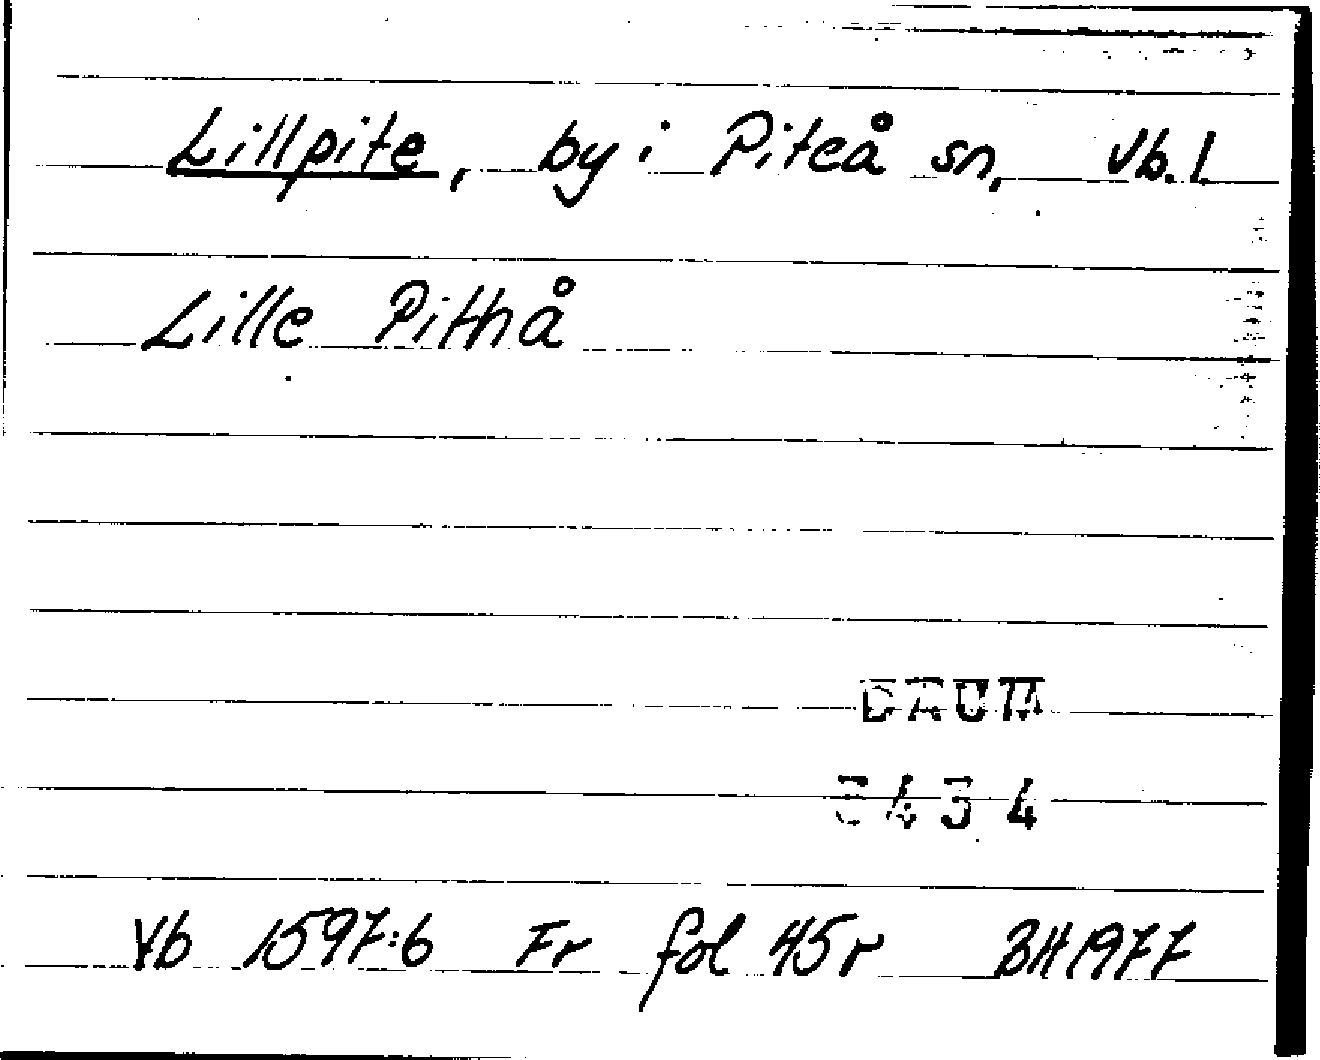 Lillpite, by i Piteå sn, Vb. l.
Lille Pithå
DAUM
3434
Vb 1597:6 Fr fol 45 r BH 1977